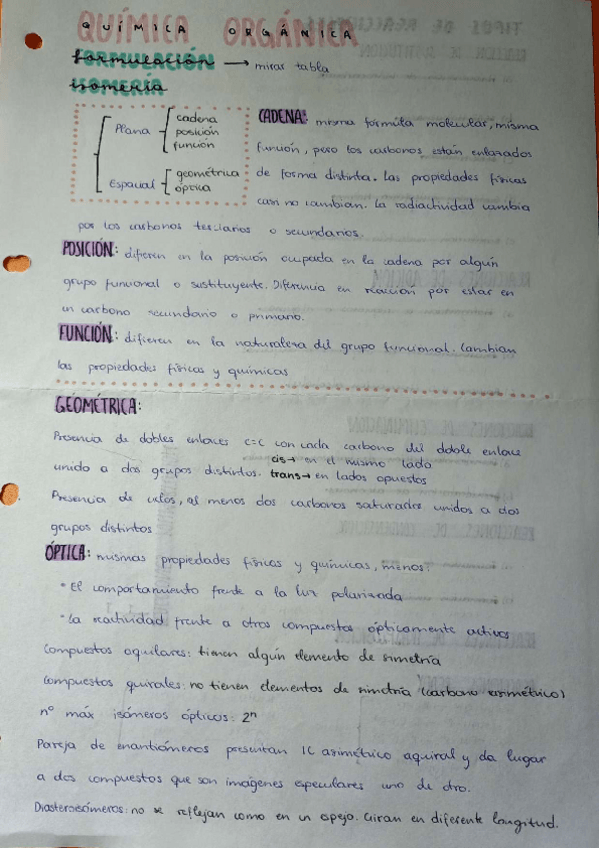 QUÍMICA ORGÁNICA
formulación → mirar tabla
isomería
Plana
cadena
posición
función
Espacial
geométrica
óptica
CADENA: misma fórmula molecular, misma
función, pero los carbonos están enlazados
de forma distinta. Las propiedades físicas
casi no cambian. La radiactividad cambia
por los carbonos terciarios o secundarios.
POSICIÓN: difieren en la posición ocupada en la cadena por algún
grupo funcional o sustituyente. Diferencia en reacción por estar en
un carbono secundario o primario.
FUNCIÓN: difieren en la naturaleza del grupo funcional. Cambian
las propiedades físicas y químicas
GEOMÉTRICA:
Presencia de dobles enlaces C=C con cada carbono del doble enlace
unido a dos grupos distintos. cis→ en el mismo lado
trans→ en lados opuestos
Presencia de ciclos, al menos dos carbonos saturados unidos a dos
grupos distintos
ÓPTICA: mismas propiedades físicas y químicas, menos:
• El comportamiento frente a la luz polarizada
• La reactividad frente a otros compuestos ópticamente activos
Compuestos aquilares: tienen algún elemento de simetría
Compuestos quirales: no tienen elementos de simetría (carbono asimétrico)
nº máx isómeros ópticos: 2ⁿ
Pareja de enantiómeros presentan 1C asimétrico aquiral y da lugar
a dos compuestos que son imágenes especulares uno de otro.
Diasteroisómeros: no se reflejan como en un espejo. Giran en diferente longitud.